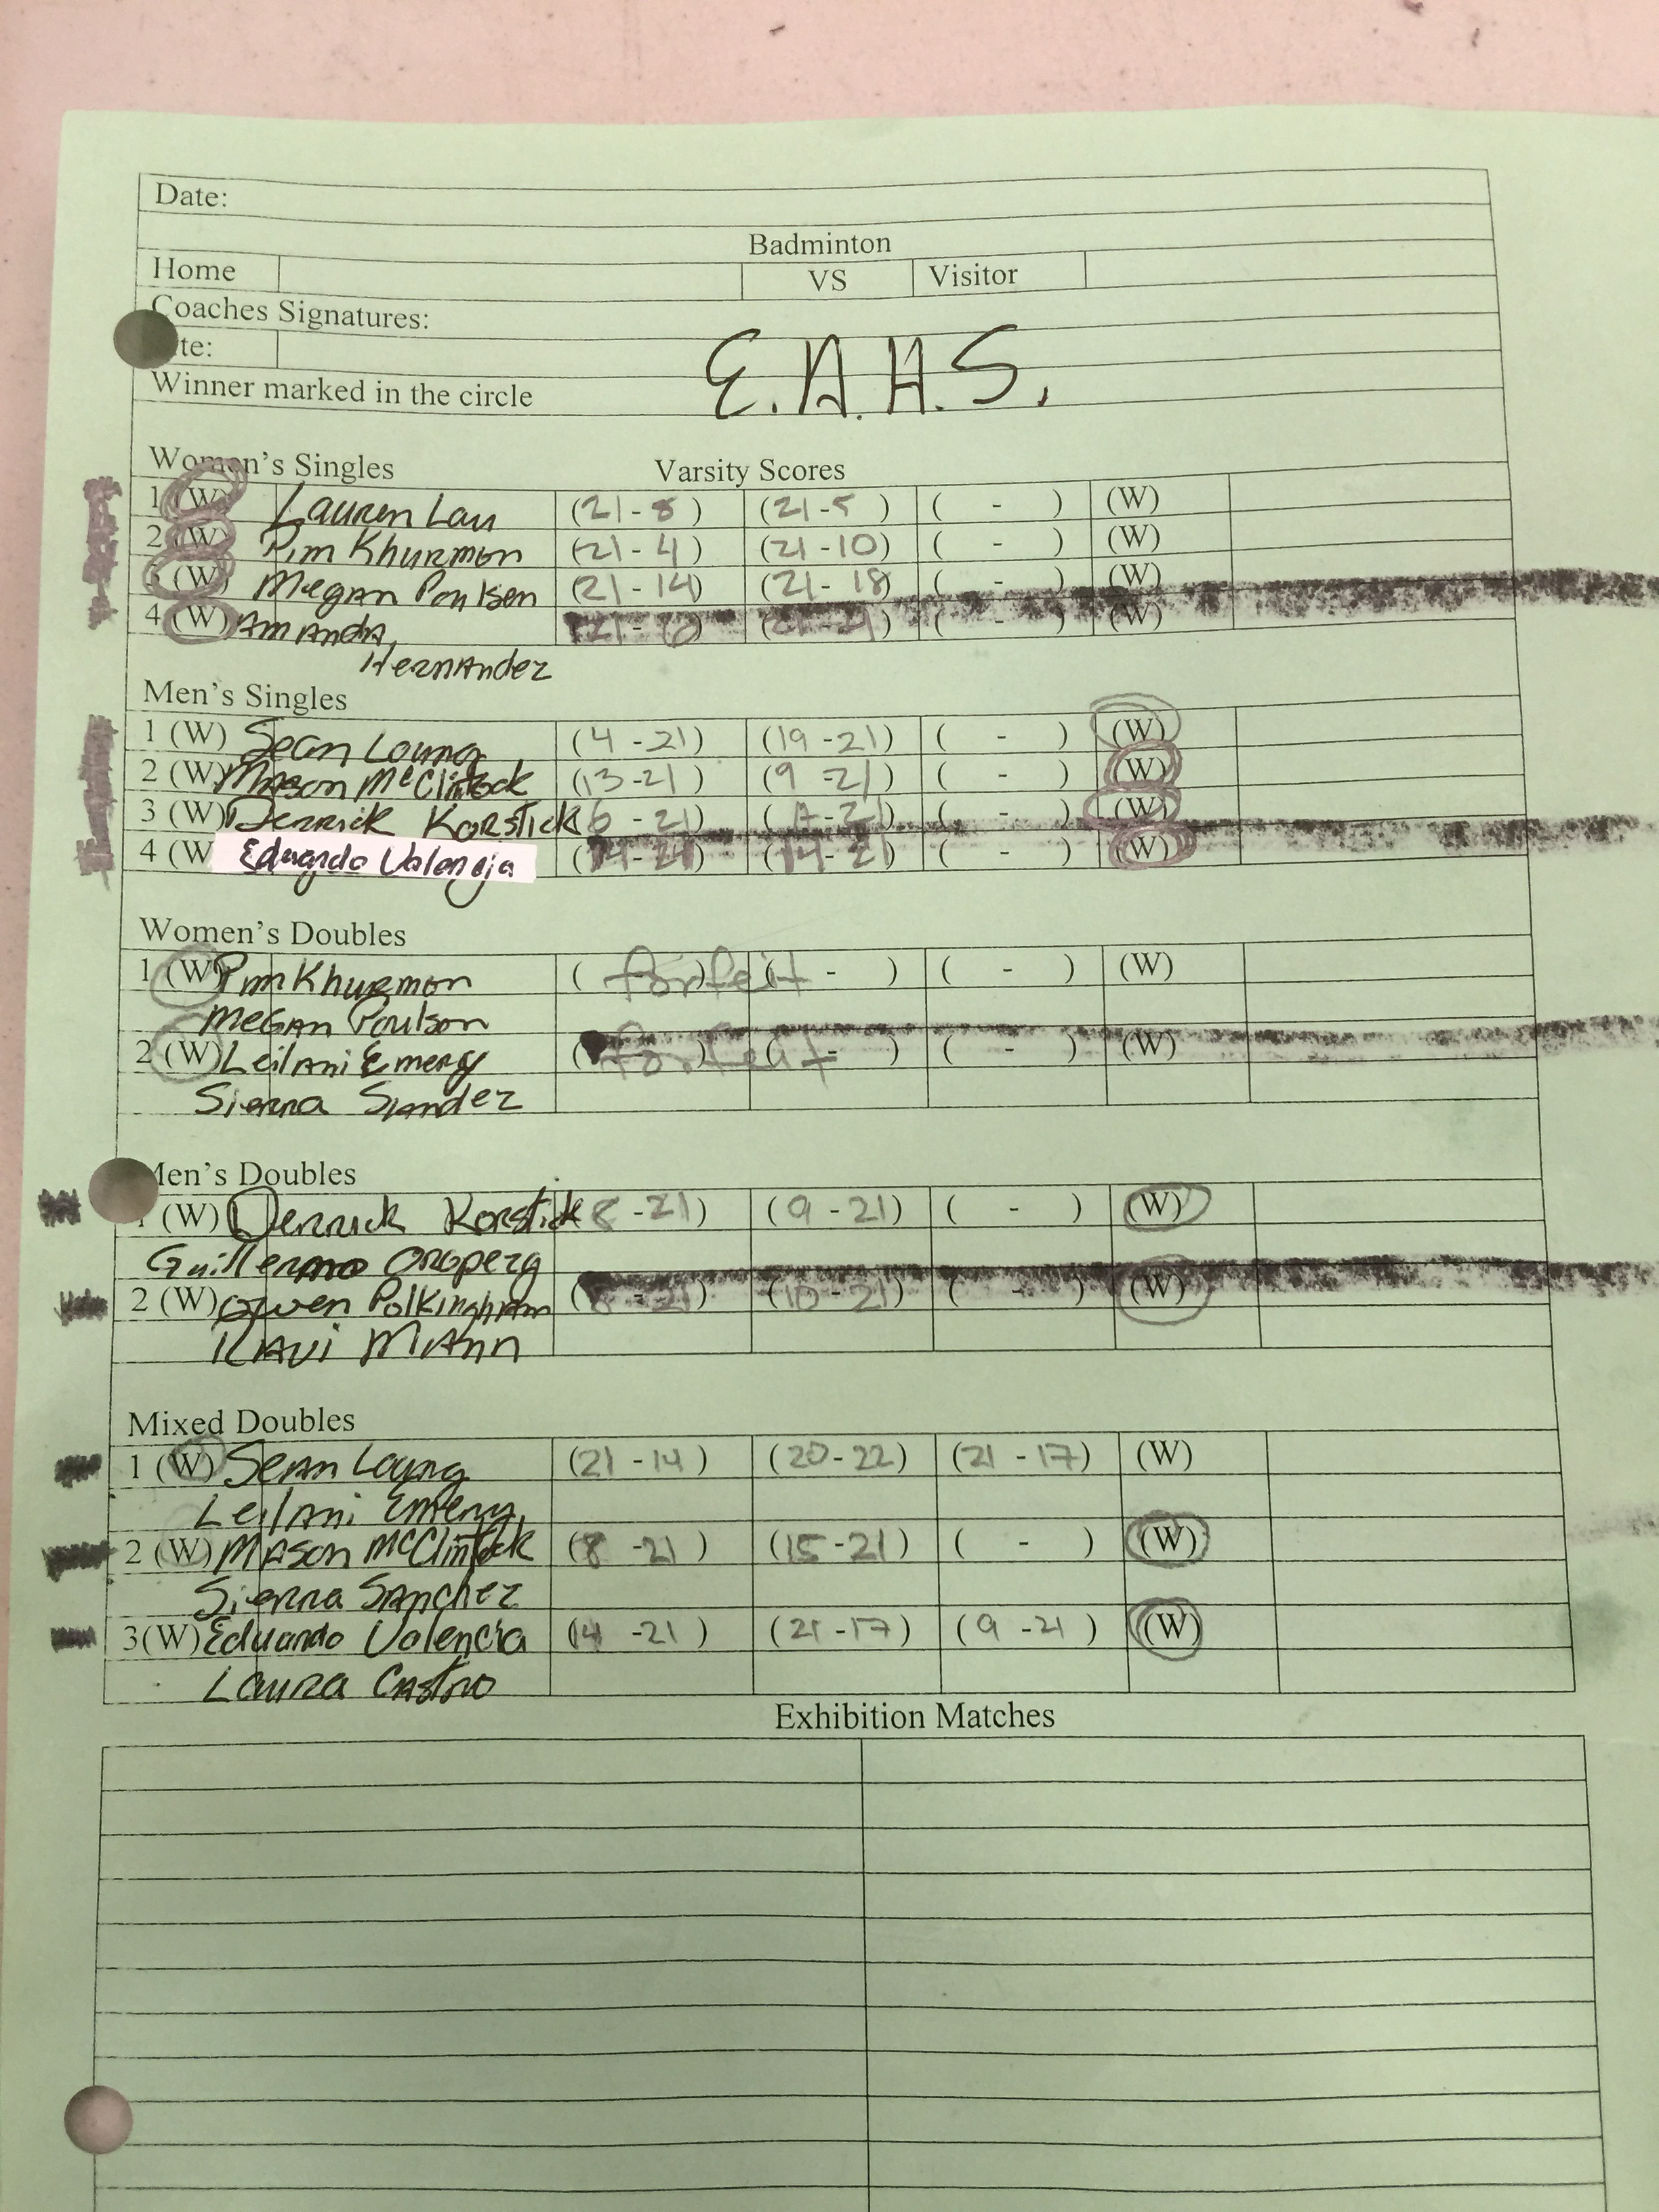 Date:
Badminton
Home VS Visitor
Coaches Signatures:
te:
E.A.H.S.
Winner marked in the circle
Women's Singles Varsity Scores
1 (W) Lauren Lau (21-8) (21-5) ( - ) (W)
2 (W) Pim Khurmon (21-4) (21-10) ( - ) (W)
3 (W) Megan Poulsen (21-14) (21-18) ( - ) (W)
4 (W) Amanda ( - ) (W)
Hernandez
Men's Singles
1 (W) Sean Loung (4-21) (19-21) ( - ) (W)
2 (W) Mason McClintock (13-21) (9-21) ( - ) (W)
3 (W) Derrick Korstick 6-21) ( -21) ( - ) (W)
4 (W Eduardo Valencia (14-21) (14-21) ( - ) (W)
Women's Doubles
1 (W) Pim Khurmon ( forfeit - ) ( - ) (W)
Megan Poulson
2 (W) Leilani Emery ( forfeit - ) ( - ) (W)
Sierra
Men's Doubles
(W) Derrick Korstick 8-21) (9-21) ( - ) (W)
Guillermo Oropeza
2 (W) Owen Polkingham ( -21) (10-21) ( - ) (W)
Ravi Mann
Mixed Doubles
1 (W) Sean Loung (21-14) (20-22) (21-17) (W)
Leilani Emery
2 (W) Mason McClintock (8-21) (15-21) ( - ) (W)
Sierra Sanchez
3(W) Eduardo Valencia (14-21) (21-17) (9-21) (W)
Laura Castro
Exhibition Matches